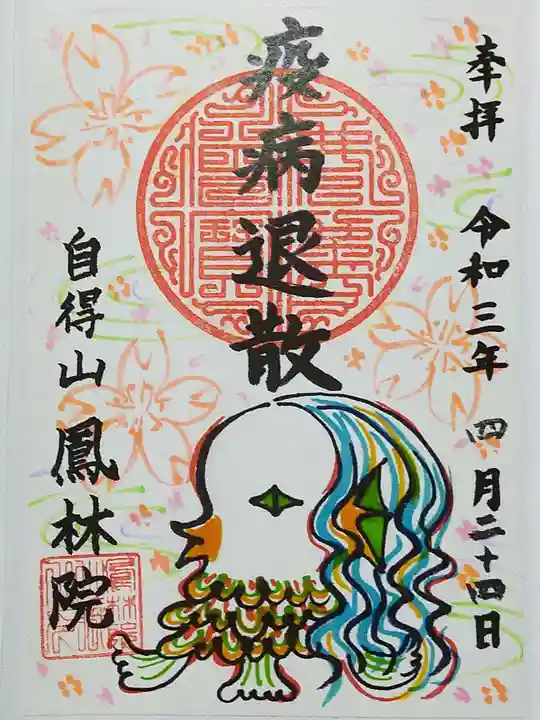 奉拝
令和三年 四月二十四日
疫病退散
自得山 鳳林院